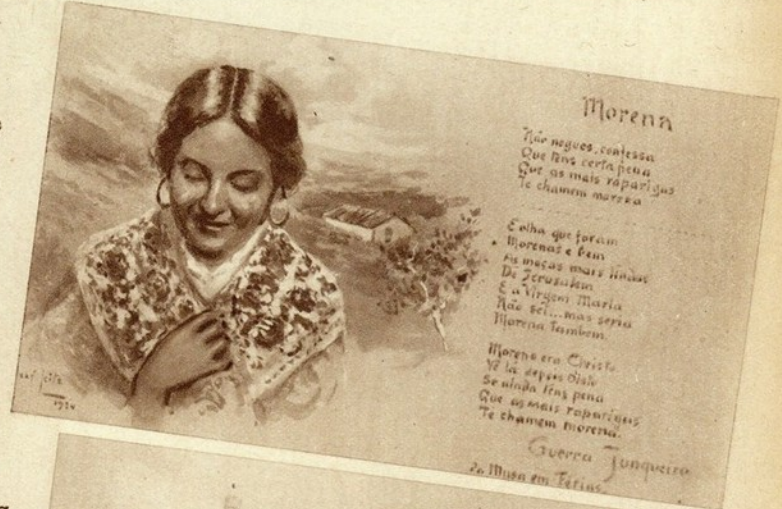 Morena
Não negues, confessa
Que tens certa pena
Que as mais raparigas
Te chamem morena
E olha que foram
Morenas e bem
As moças mais lindas
De Jerusalem
E a Virgem Maria
Não sei... mas seria
Morena tambem.
Moreno era Christo
Vê lá depois disto
Se ainda tens pena
Que as mais raparigas
Te chamem morena.
Guerra Junqueiro
Da Musa em Férias.